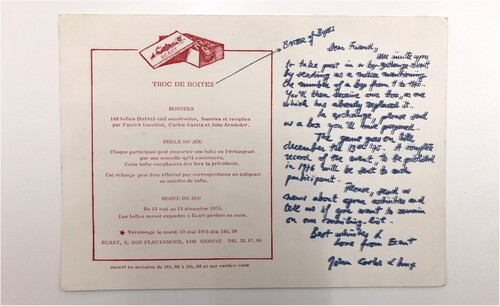 ECART
TROC DE BOITES
DONNEES
140 boîtes (5x10x5 cm) numérotées, fournies et remplies
par Patrick Lucchini, Carlos Garcia et John Armleder.
REGLE DU JEU
Chaque participant peut emporter une boîte en l'échangeant
par une nouvelle qu'il constituera.
Cette boîte remplacera dès lors la précédente.
Cet échange peut être effectué par correspondance en indiquant
un numéro de boîte.
DUREE DU JEU
Du 13 mai au 13 décembre 1975.
Les boîtes seront exposées à Ecart pendant ce mois.
★ Vernissage le mardi 13 mai 1975 dès 18h.30
ECART, 6, RUE PLANTAMOUR, 1201 GENEVE TEL.
ouvert en semaine de 16h.30 à 18h.30 et sur rendez-vous
Barter of Boxes
Dear Friend,
We invite you
to take part in a box-exchange event
by sending us a notice mentioning
the number of a box from 1 to 140.
You'll then receive this box, or one
which has already replaced it.
In exchange, please send
us a box you'll have prepared.
The game goes on till
december the 13rd 1975. A complete
record of the event, to be published
in 1976 will be sent to each
participant.
Please, send us
news about your activities and
tell us if you want to remain
on our mailing-list.
Best whishes &
love from Ecart
John Carlos &